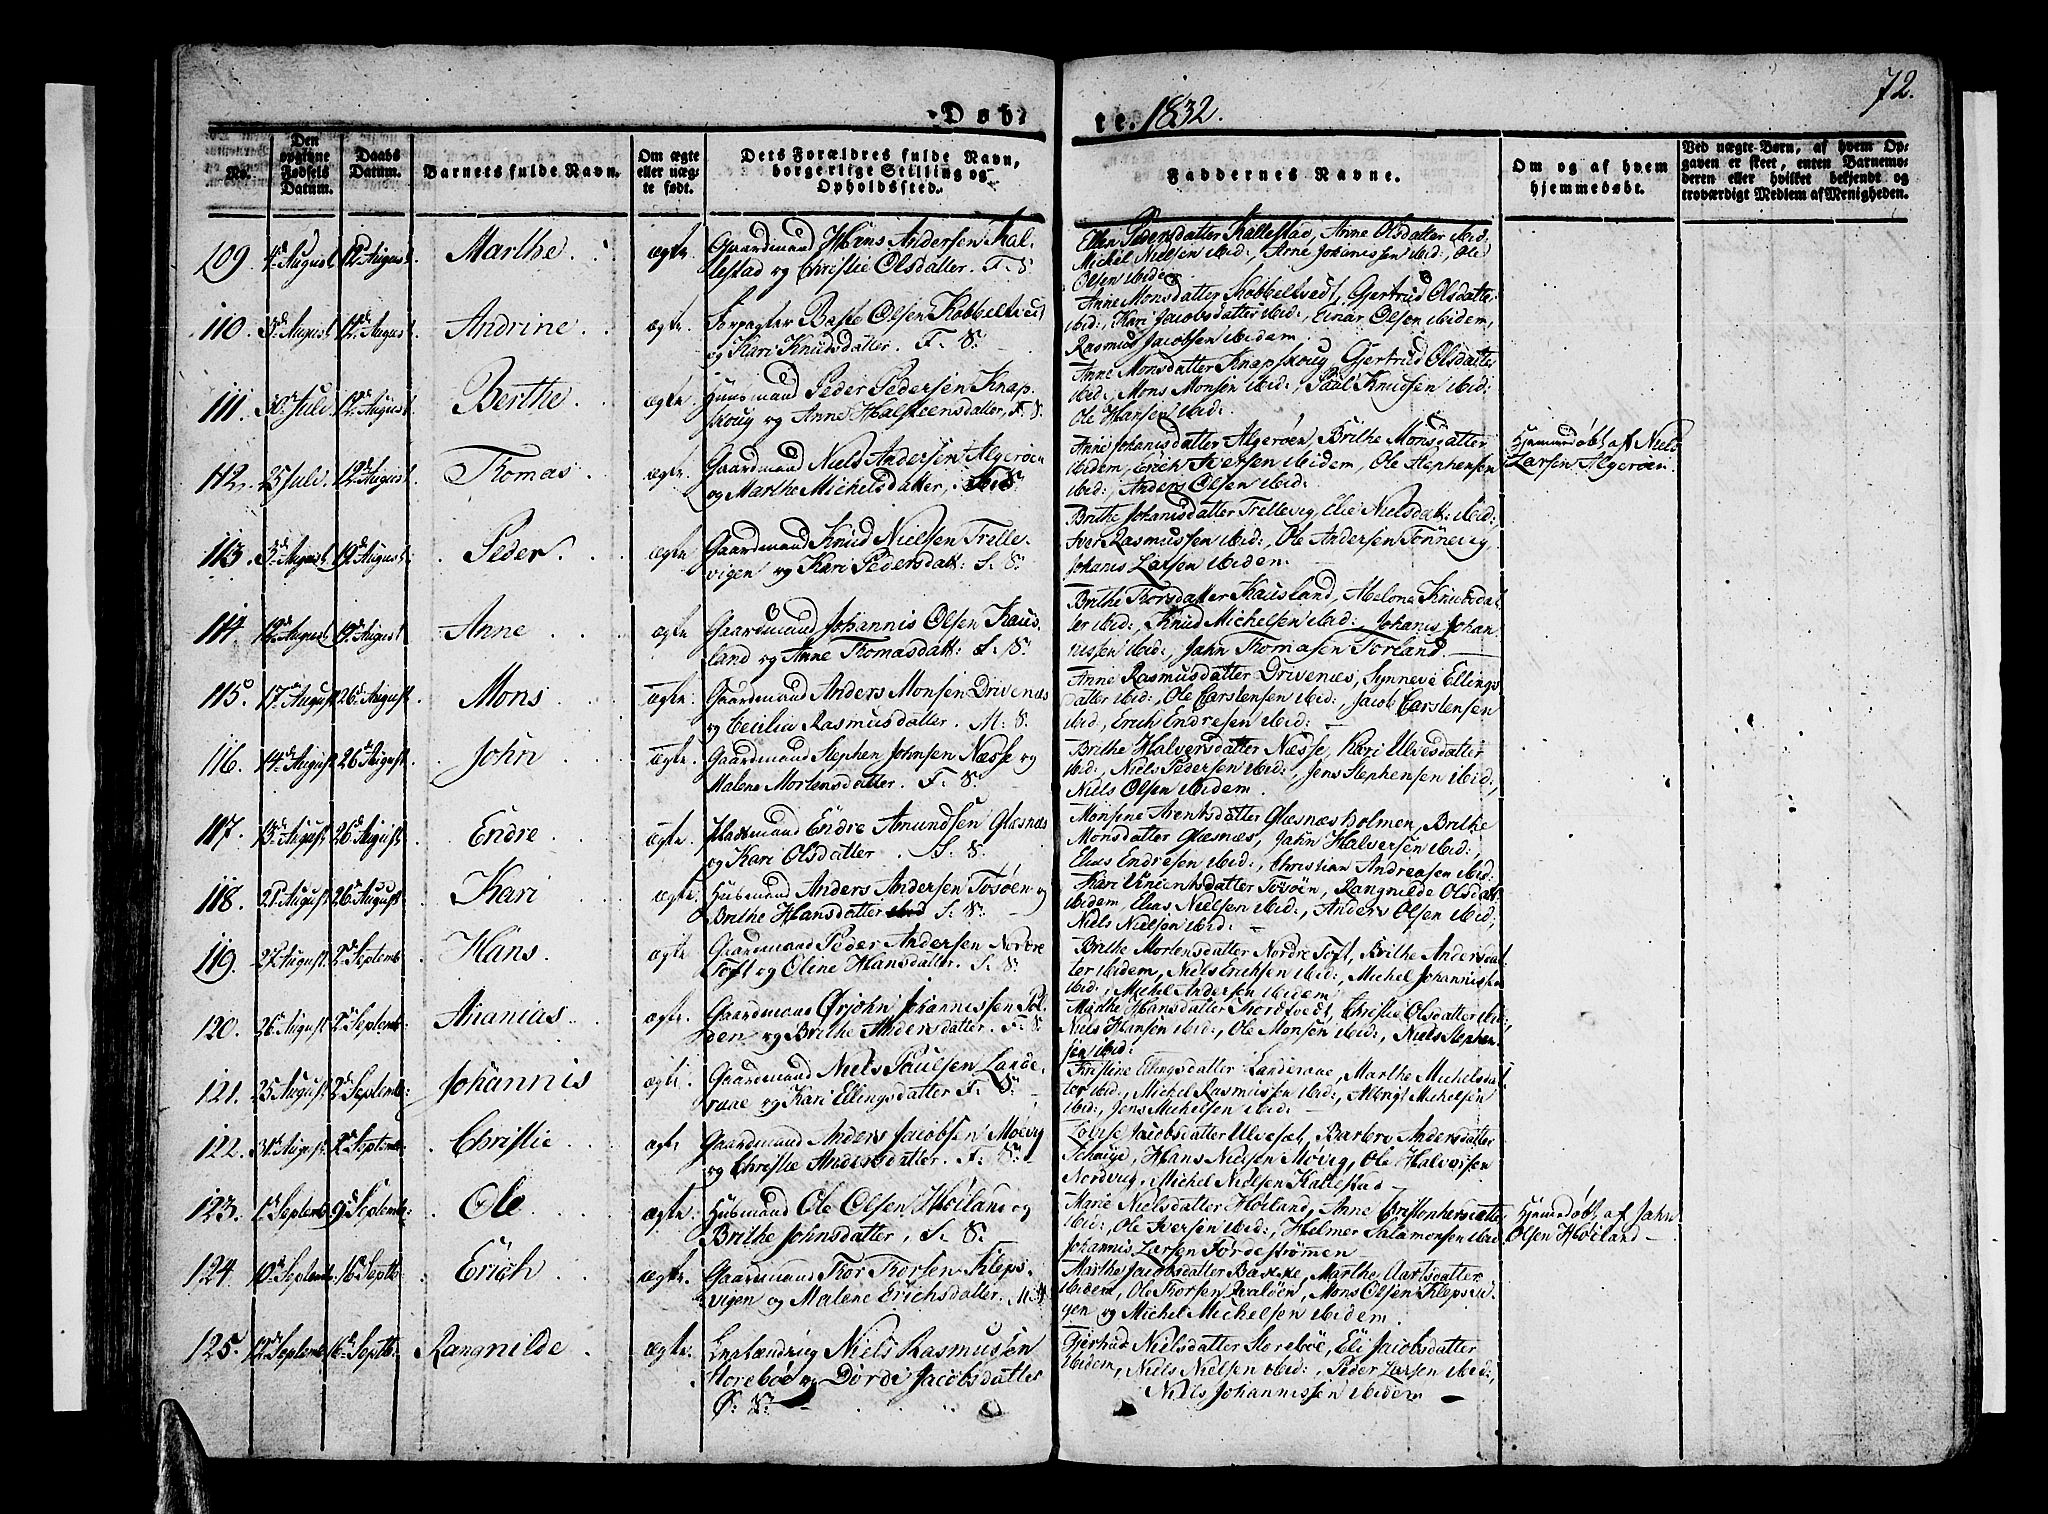 72.
Døb-
te. 1832.
No.
Den
opgivne
Fødsels
Datum.
Daabs
Datum.
Barnets fulde Navn.
Om ægte
eller uæg-
te født.
Dets Forældres fulde Navn,
borgerlige Stilling og
Opholdssted.
Faddernes Navne.
Om og af hvem
hjemmedøbt.
Ved uægte Børn, af hvem Op-
gaven er skeet, enten Barnemo-
deren eller hvilket bekjendt og
troværdigt Medlem af Menigheden.
109. 4de August 12te August Marthe ægte Gaardmand Hans Andersen Kal-
lestad og Christie Olsdatter. F. S.
Ellen Pedersdatter Kallestad, Anne Olsdatter ibid:
Michel Nielsen ibid:, Arne Johannissen ibid:, Ole
Olsen ibidem
110. 3de August 12te August Andrine ægte Forpagter Baste Olsen Kobbeltvedt
og Kari Knudsdatter. F. S.
Anne Monsdatter Kobbeltvedt, Gjertrud Olsdatter
ibid:, Kari Jacobsdatter ibid:, Einar Olsen ibidem,
Rasmus Jacobsen ibidem.
111. 30te Juli 12te August Berthe ægte Huusmand Peder Pedersen Knap-
skoug og Anne Halsteensdatter, F. S.
Anne Monsdatter Knapskoug, Gjertrud Olsdatter
ibid:, Mons Monsen ibid:, Paul Knudsen ibid:
Ole Hansen ibid:
112. 25 Juli 12te August Thomas ægte Gaardmand Niels Andersen Algerøen
og Marthe Michelsdatter, S.
Anne Johanisdatter Algerøen, Brithe Monsdatter
ibidem, Erich Iversen ibidem, Ole Stephensen
ibid:, Anders Olsen ibid:
Hjemmedøbt af Niels
Larsen Algerøen.
113. 3de August 19de August Peder ægte Gaardmand Knud Nielsen Trelle-
vigen og Kari Pedersdatt: S. S.
Brithe Johanisdatter Trellevig, Elie Nielsdatt: ibid:
Iver Rasmussen ibid:, Ole Andersen Tønnevig,
Johanis Larsen ibidem.
114. 12te August 19de August Anne ægte Gaardmand Johannis Olsen Kaus-
land og Anne Thomasdatt: S. S.
Brithe Thorsdatter Kausland, Malene Knudsdat-
ter ibid:, Knud Michelsen ibid:, Johanis Johan-
nissen ibid:, Jahn Thomasen Torland
115. 17de August 26de August Mons ægte Gaardmand Anders Monsen Drivenæs
og Cecilia Rasmusdatter. M. S.
Anne Rasmusdatter Drivenæs, Synneve Ellings-
datter ibid:, Ole Carstensen ibid:, Jacob Carstensen
ibid, Erich Endresen ibid:
116. 14de August 26de August John ægte Gaardmand Stephen Johnsen Næsse og
Malene Mortensdatter. F. S.
Brithe Halversdatter Næsse, Kari Ulvesdatter
ibid:, Niels Pedersen ibid:, Jens Stephensen ibid:,
Niels Olsen ibidem.
117. 13de August 26de August Endre ægte Endre Amundsen Glæsnæs
og Kari Olsdatter. S. S.
Monsine Arentsdatter Glæsnæsholmen, Brithe
Monsdatter Glæsnæs, Jahn Halversen ibid:,
Elias Endresen ibid:, Christian Andreasen ibid:
118. 21de August 26de August Kari ægte Husmand Anders Andersen Tosøen og
Brithe Hansdatter S. S.
Kari Vincentsdatter Tosøen, Rangnilde Olsdatt:
ibidem, Elias Nielsen ibid:, Anders Olsen ibid:,
Niels Nielsen ibid:
119. 27 August 2de Septemb: Hans. ægte Gaardmand Peder Andersen Nordre
Toft og Oline Hansdatter. S. S.
Brithe Mortensdatter Nordre Toft, Brithe Andersdat-
ter ibidem, Niels Ericksen ibid:, Michel Johannissen
ibid:, Michel Andersen ibidem
120. 26de August 2de Septemb: Ananias. ægte Gaardmand Ørjohn Johannissen Pol-
den og Brithe Andersdatter. F. S.
Marthe Hansdatter Skordtvedt, Christie Olsdatter ibid:
Niels Hansen ibid:, Ole Monsen ibid:, Niels Stephen-
sen ibid:
121. 25 August 2de Septemb: Johannis ægte Gaardmand Niels Poulsen Lande-
raae og Kari Ellingsdatter F. S.
Christine Ellingsdatter Landeraae, Marthe Michelsdat-
ter ibid:, Michel Rasmussen ibid:, Mongs Michelsen
ibid:, Jens Michelsen ibid:
122. 31te August 2de Septemb: Christie ægte Gaardmand Anders Jacobsen Møvig
og Christie Andersdatter. F. S.
Lovise Jacobsdatter Ulveset, Barbro Andersdatter
Schauge, Hans Nielsen Møvig, Ole Halversen
Nordvig, Michel Nielsen Kallestad
123. 1de Septemb: 9de Septemb: Ole ægte Husmand Ole Olsen Høiland og
Brithe Johnsdatter, S. S.
Marie Nielsdatter Høiland, Anne Cristophersdatter
ibid:, Ole Iversen ibid:, Helmer Salamonsen ibid
Johannis Larsen Førdestrømen
Hjemmedøbt af Jahn
Olsen Høiland
124. 10de Septemb: 16de Septb: Erich ægte Gaardmand Thor Thorsen Kleps-
vigen og Malene Erichsdatter. M. S.
Marthe Jacobsdatter Bakke, Marthe Aartsdatter
ibidem, Ole Thorsen Hvaløen, Mons Olsen Klepsvi-
gen og Michel Michelsen ibidem.
125. 12te Septemb: 16de Septb: Rangnilde ægte Niels Rasmussen
Storebøe og Dorde Jacobsdatter
Ø. S.
Gjertrud Nielsdatter Storebøe, Eli Jacobsdatter
ibidem, Niels Nielsen ibid:, Peder Larsen ibid:,
Niels Johannissen ibidem